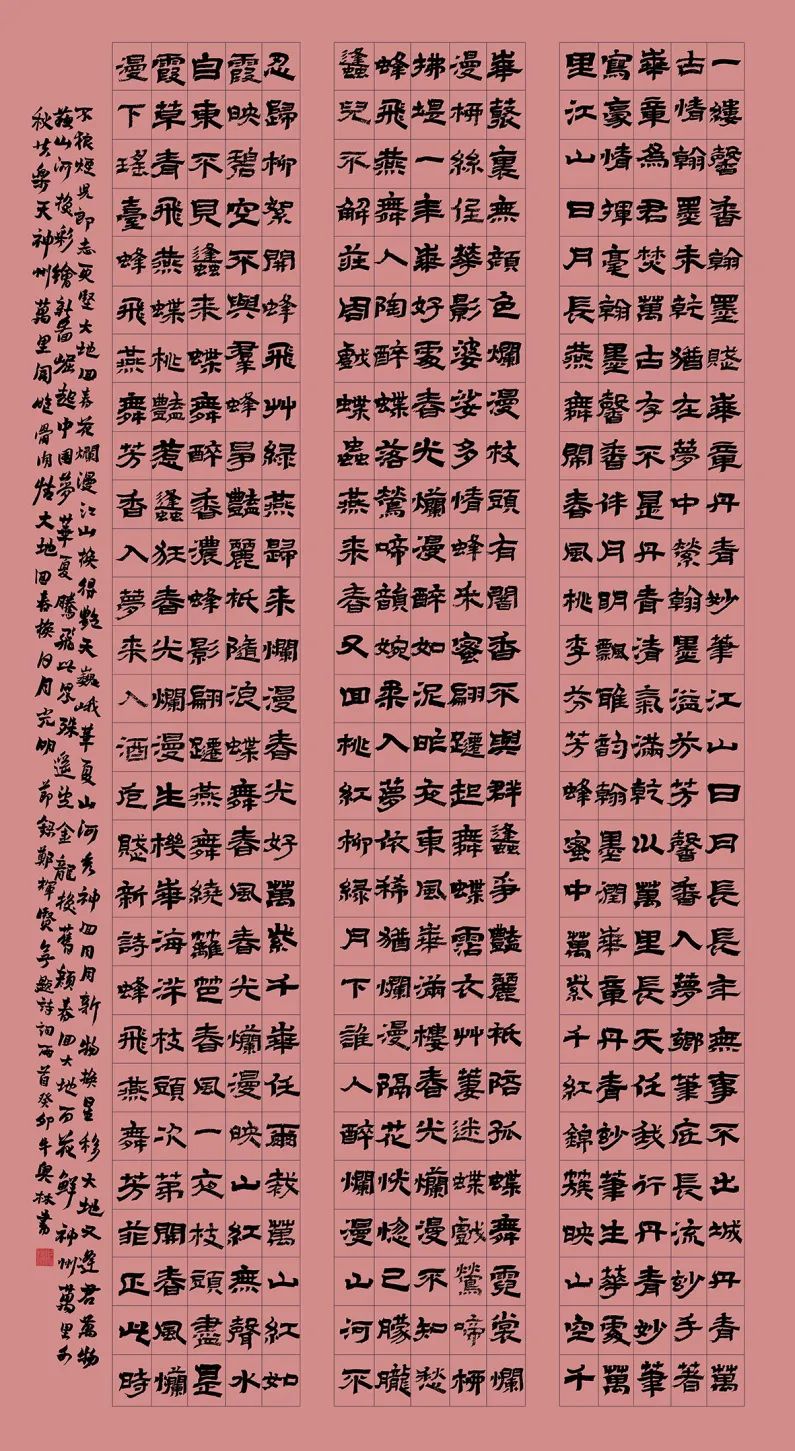 一縷馨香翰墨牋崋章丹青妙筆江山日月長長年無事不出城丹青萬
古情翰墨未乾猶在夢中縈翰墨溢芬芳馨香入夢鄉筆底長流妙手著
崋章為君焚萬古存不是丹青清氣滿乾坤萬里長天任我行丹青妙筆
寫豪情揮毫翰墨馨香伴月明飄雅韵翰墨潤崋章丹青妙筆生華處萬
里江山日月長燕舞鬧春風桃李芬芳蜂蜜中萬紫千紅錦簇映山空千
崋叢裏無顔色爛漫枝頭有闇香不與群蠭爭豔麗祇陪孤蝶舞霓裳爛
漫柳絲垂華影婆娑多情蜂采蜜翩躚起舞蝶霑衣艸萋迷蝶戲鶯啼柳
拂堤一年崋好處春光爛漫醉如泥昨夜東風崋滿樓春光爛漫不知愁
蜂飛燕舞人陶醉蝶落鶯啼韻婉柔入夢依稀猶爛漫隔花恍惚已朦朧
蠭兒不解莊周戲蝶蟲燕來春又回桃紅柳綠月下誰人醉爛漫山河不
忍歸柳絮開蜂飛艸綠燕歸來爛漫春光好萬紫千崋任爾栽萬山紅如
霞映碧空不與羣蜂爭豔麗祇隨浪蝶舞春風春光爛漫映山紅無聲水
自東不見蠭來蝶舞醉香濃蜂影翩躚燕舞繞籬笆春風一夜枝頭盡是
霞草青飛燕蝶桃豔惹蠭狂春光爛漫生機崋海深枝頭次第開春風爛
漫下瑤臺蜂飛燕舞芳香入夢來人酒卮牋新詩蜂飛燕舞芳菲正此時
志更堅大地回春花爛漫江山換得艷天巍峨華夏山河秀神四日月新物換星移大地又逢君萬物
蘇山河換彩繪新圖崛起中國夢華夏騰飛此界殊遙望金龍換舊顏春回大地百花鮮神州萬里
秋共舉天神州萬里同骨肉情大地回春換日月光明節錄鄭輝賢無題詩詞兩首癸卯牛奧林書